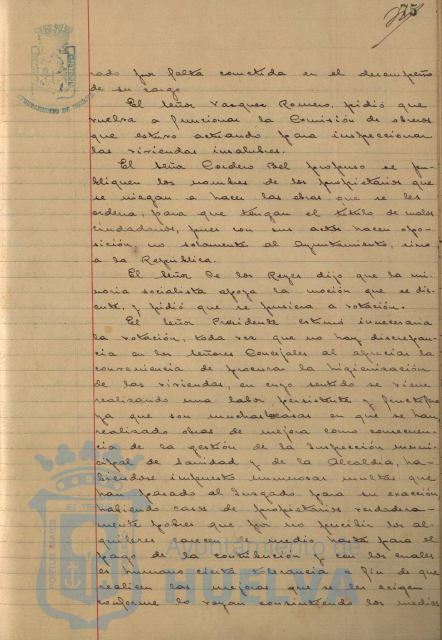 75
rado por falta cometida en el desempeño
de su cargo
El Señor Vazquez Romero, pidió que
vuelva a funcionar la Comisión de obreros
que estuvo actuando para inspeccionar
las viviendas insalubres.
El Seña Cordero Bel propuso se pu-
bliquen los nombres de los propietarios que
se niegan a hacer las obras que se les
ordena, para que tengan el título de malos
ciudadanos, pues con sus actos hacen opo-
sición, no solamente al Ayuntamiento, sino
a la República.
El Señor De los Reyes dijo que la mi-
noria socialista apoya la moción que se dis-
cute, y pidió que se pusiera a votación.
El Señor Presidente estimó innecesaria
la votación, toda vez que no hay discrepan-
cia en los Señores Concejales al apreciar la
conveniencia de procurar la higienización
de las viviendas, en cuyo sentido se viene
realizando una labor persistente y fructífera
ya que son muchas casas en que se han
realizado obras de mejora como consecuen-
cia de la gestión de la Inspección muni-
cipal de Sanidad y de la Alcaldía, ha-
biendose impuesto numerosas multas que
han pasado al Juzgado para su exacción
habiendo casos de propietarios verdadera-
mente pobres que por no percibir los al-
quileres carecen de medios hasta para el
pago de la contribución y con los cuales
es humano cierta tolerancia a fin de que
realicen las mejoras que se les exigen
conforme lo vayan consintiendo los medios
Ayuntamiento de
HUELVA